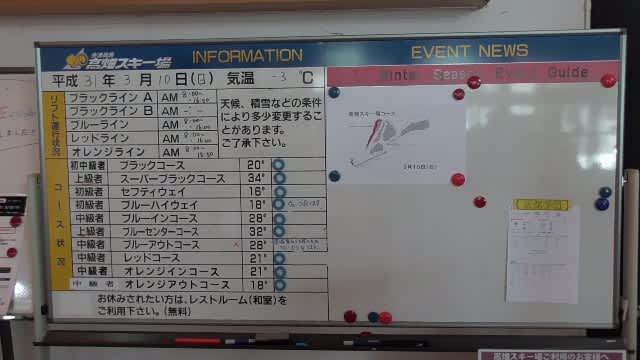 会津高原
高畑スキー場
INFORMATION
平成31年3月10日(日) 気温 -3 ℃
リフト運行状況
ブラックライン A AM 8:00~16:00
ブラックライン B AM
ブルーライン AM 8:00~16:00
レッドライン AM 8:00~16:00
オレンジライン AM 8:00~16:30
天候、積雪などの条件
により多少変更するこ
とがあります。
ご了承下さい。
コース状況
初中級者 ブラックコース 20°
上級者 スーパーブラックコース 34°
初級者 セフティウェイ 16°
初級者 ブルーハイウェイ 18°
中級者 ブルーインコース 28°
上級者 ブルーセンターコース 32°
中級者 ブルーアウトコース 28°
中級者 レッドコース 21°
中級者 オレンジインコース 21°
中級者 オレンジアウトコース 18°
お休みされたい方は、レストルーム(和室)を
ご利用下さい。(無料)
EVENT NEWS
Winter Season Event Guide
高畑スキー場コース
3月10日(日)
高畑スキー場ご利用のお客様へ